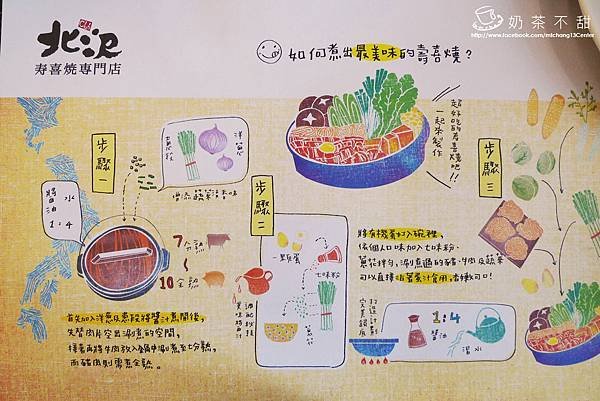 北沢
寿喜燒專門店
奶茶不甜
http://www.facebook.com/mlchang13Center
如何煮出最美味的壽喜燒?
超好吃的壽喜燒吧!!
一起來製作
步驟一
洋蔥
蔥段
增添蔬菜清甜味
醬油 水
1:4
7分熟
10全熟
首先加入洋蔥及蔥段將醬汁煮開後,
先替肉片空出涮煮的空間,
接著再將牛肉放入鍋中涮煮至七分熟,
而豬肉則需煮全熟。
步驟二
一顆蛋
七味粉
蔥花
步驟三
將有機蛋打入碗裡,
依個人口味加七味粉、
蔥花拌勻,涮煮過的豬、牛肉及蔬菜
可以直接沾著蛋汁食用,香嫩可口!
1:4
醬油
湯水